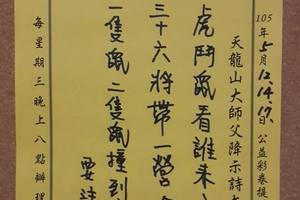 105年5月12.14.17.公益彩券提
天龍山大師父降示詩
虎鬥鼠看誰來
三十六將帶一營
一隻鼠二隻鼠撞到
要
每星期三晚上八點辦理